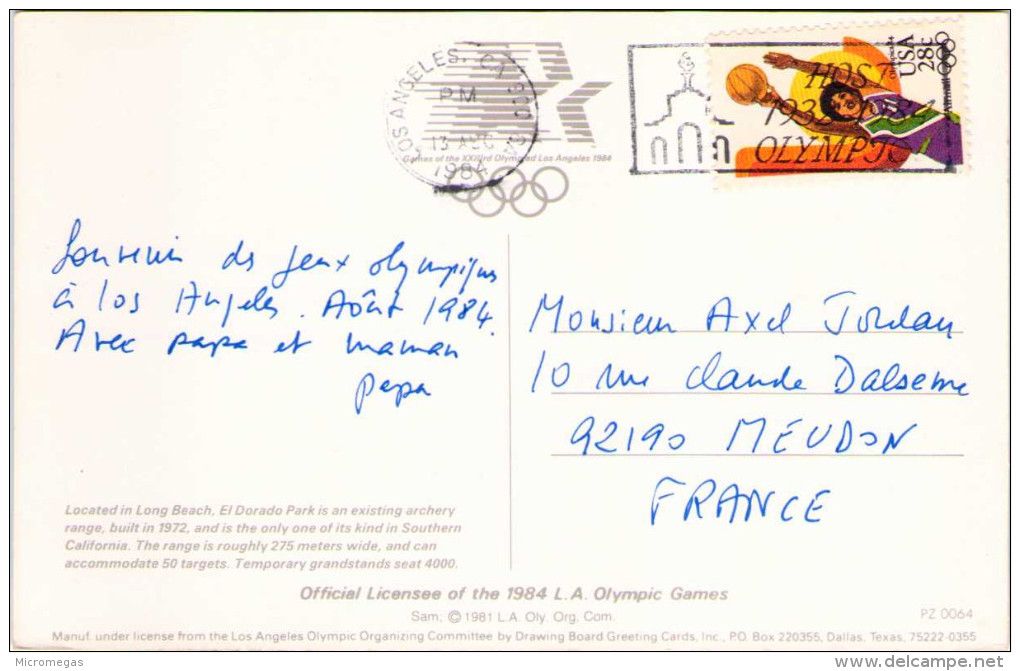 LOS ANGELES, CA 900
PM
13 AUG
1984
Games of the XXIIIrd Olympiad Los Angeles 1984
HOST
1932 1984
OLYMPIC
USA
28c
Souvenir des jeux olympiques
à Los Angeles. Août 1984.
Avec papa et maman
Papa
Monsieur Axel Jordan
10 rue Claude Dalseme
92190 MEUDON
FRANCE
Located in Long Beach, El Dorado Park is an existing archery
range, built in 1972, and is the only one of its kind in Southern
California. The range is roughly 275 meters wide, and can
accommodate 50 targets. Temporary grandstands seat 4000.
Official Licensee of the 1984 L.A. Olympic Games
Sam; © 1981 L.A. Oly. Org. Com.
PZ 0064
Manuf. under license from the Los Angeles Olympic Organizing Committee by Drawing Board Greeting Cards, Inc., P.O. Box 220355, Dallas, Texas, 75222-0355
Micromegas
www.delcampe.net